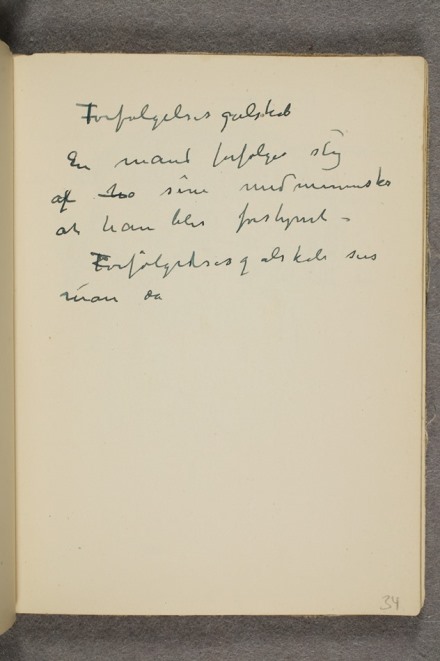 Forfølgelses galskab
En mand forfølges slig
af sine medmennesker
at han blir forstyrret –
Forfølgelsesgalskab sies
man da
34